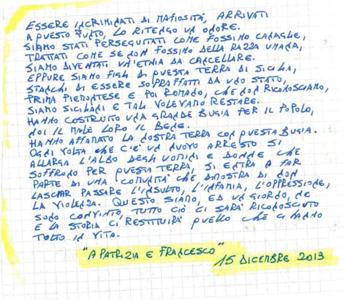 ESSERE INCRIMINATI DI MAFIOSITÀ, ARRIVATI
A QUESTO PUNTO, LO RITENGO UN ONORE.
SIAMO STATI PERSEGUITATI COME FOSSIMO CANAGLIE,
TRATTATI COME SE NON FOSSIMO DELLA RAZZA UMANA,
SIAMO DIVENTATI UN'ETNIA DA CANCELLARE.
EPPURE SIAMO FIGLI DI QUESTA TERRA DI SICILIA,
STANCHI DI ESSERE SOPRAFFATTI DA UNO STATO,
PRIMA PIEMONTESE E POI ROMANO, CHE NON RICONOSCIAMO,
SIAMO SICILIANI E TALI VOLEVAMO RESTARE.
HANNO COSTRUITO UNA GRANDE BUGIA PER IL POPOLO,
NOI IL MALE LORO IL BENE.
HANNO AFFAMATO LA NOSTRA TERRA CON QUESTA BUGIA.
OGNI VOLTA CHE C'È UN NUOVO ARRESTO SI
ALLARGA L'ALBO DEGLI UOMINI E DONNE CHE
SOFFRONO PER QUESTA TERRA, SI ENTRA A FAR
PARTE DI UNA COMUNITÀ CHE DIMOSTRA DI NON
LASCIAR PASSARE L'INSULTO, L'INFAMIA, L'OPPRESSIONE,
LA VIOLENZA. QUESTO SIAMO, ED UN GIORNO, NE
SONO CONVINTO, TUTTO CIÒ CI SARÀ RICONOSCIUTO
E LA STORIA CI RESTITUIRÀ QUELLO CHE CI HANNO
TOLTO IN VITA.
"A PATRIZIA E FRANCESCO" 15 DICEMBRE 2013